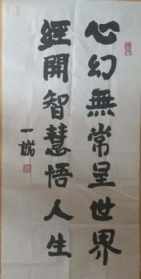 心幻無常呈世界
經開智慧悟人生
一誠